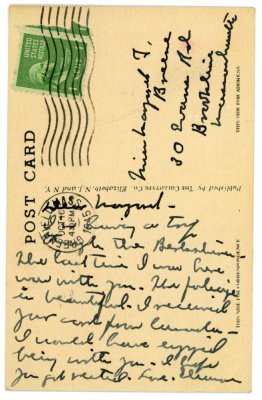 POST CARD
Published by The Collotype Co., Elizabeth, N. J. and N. Y.
THIS SIDE FOR ADDRESS
THIS SIDE FOR CORRESPONDENCE
UNITED STATES
POSTAGE
Miss Margaret T.
Breene
30 Evans Rd
Brookline
Massachusetts
MASS.
Margaret -
a trip
through the Berkshires
The last time I was here
was with you. The foliage
is beautiful. I received
your card from
I would have enjoyed
being with you. I hope
you got rested. Love. Eleanor